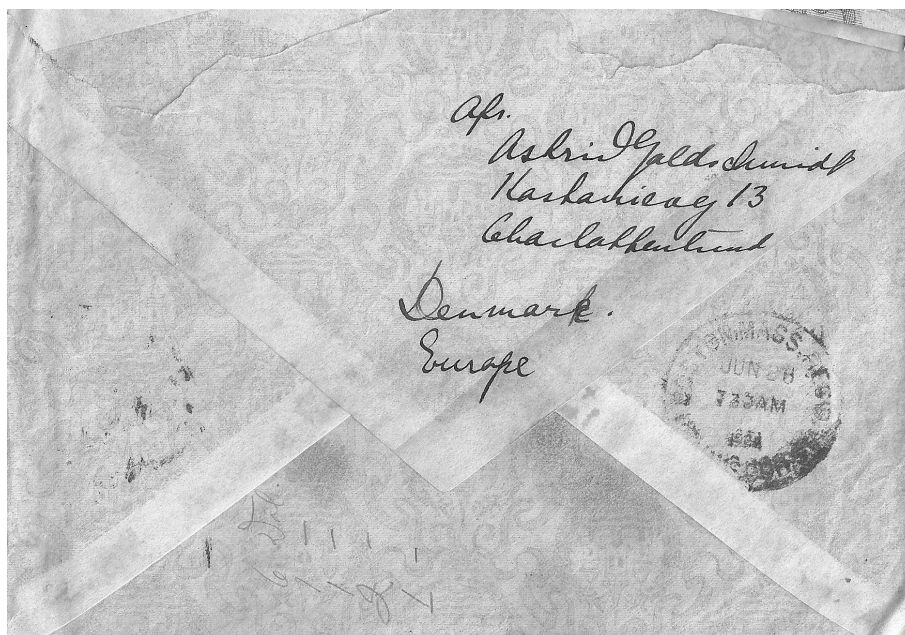 Afs.
Astrid Goldschmidt
Kastanievej 13
Charlottenlund
Denmark.
Europe
MASS.
JUN 28
730AM